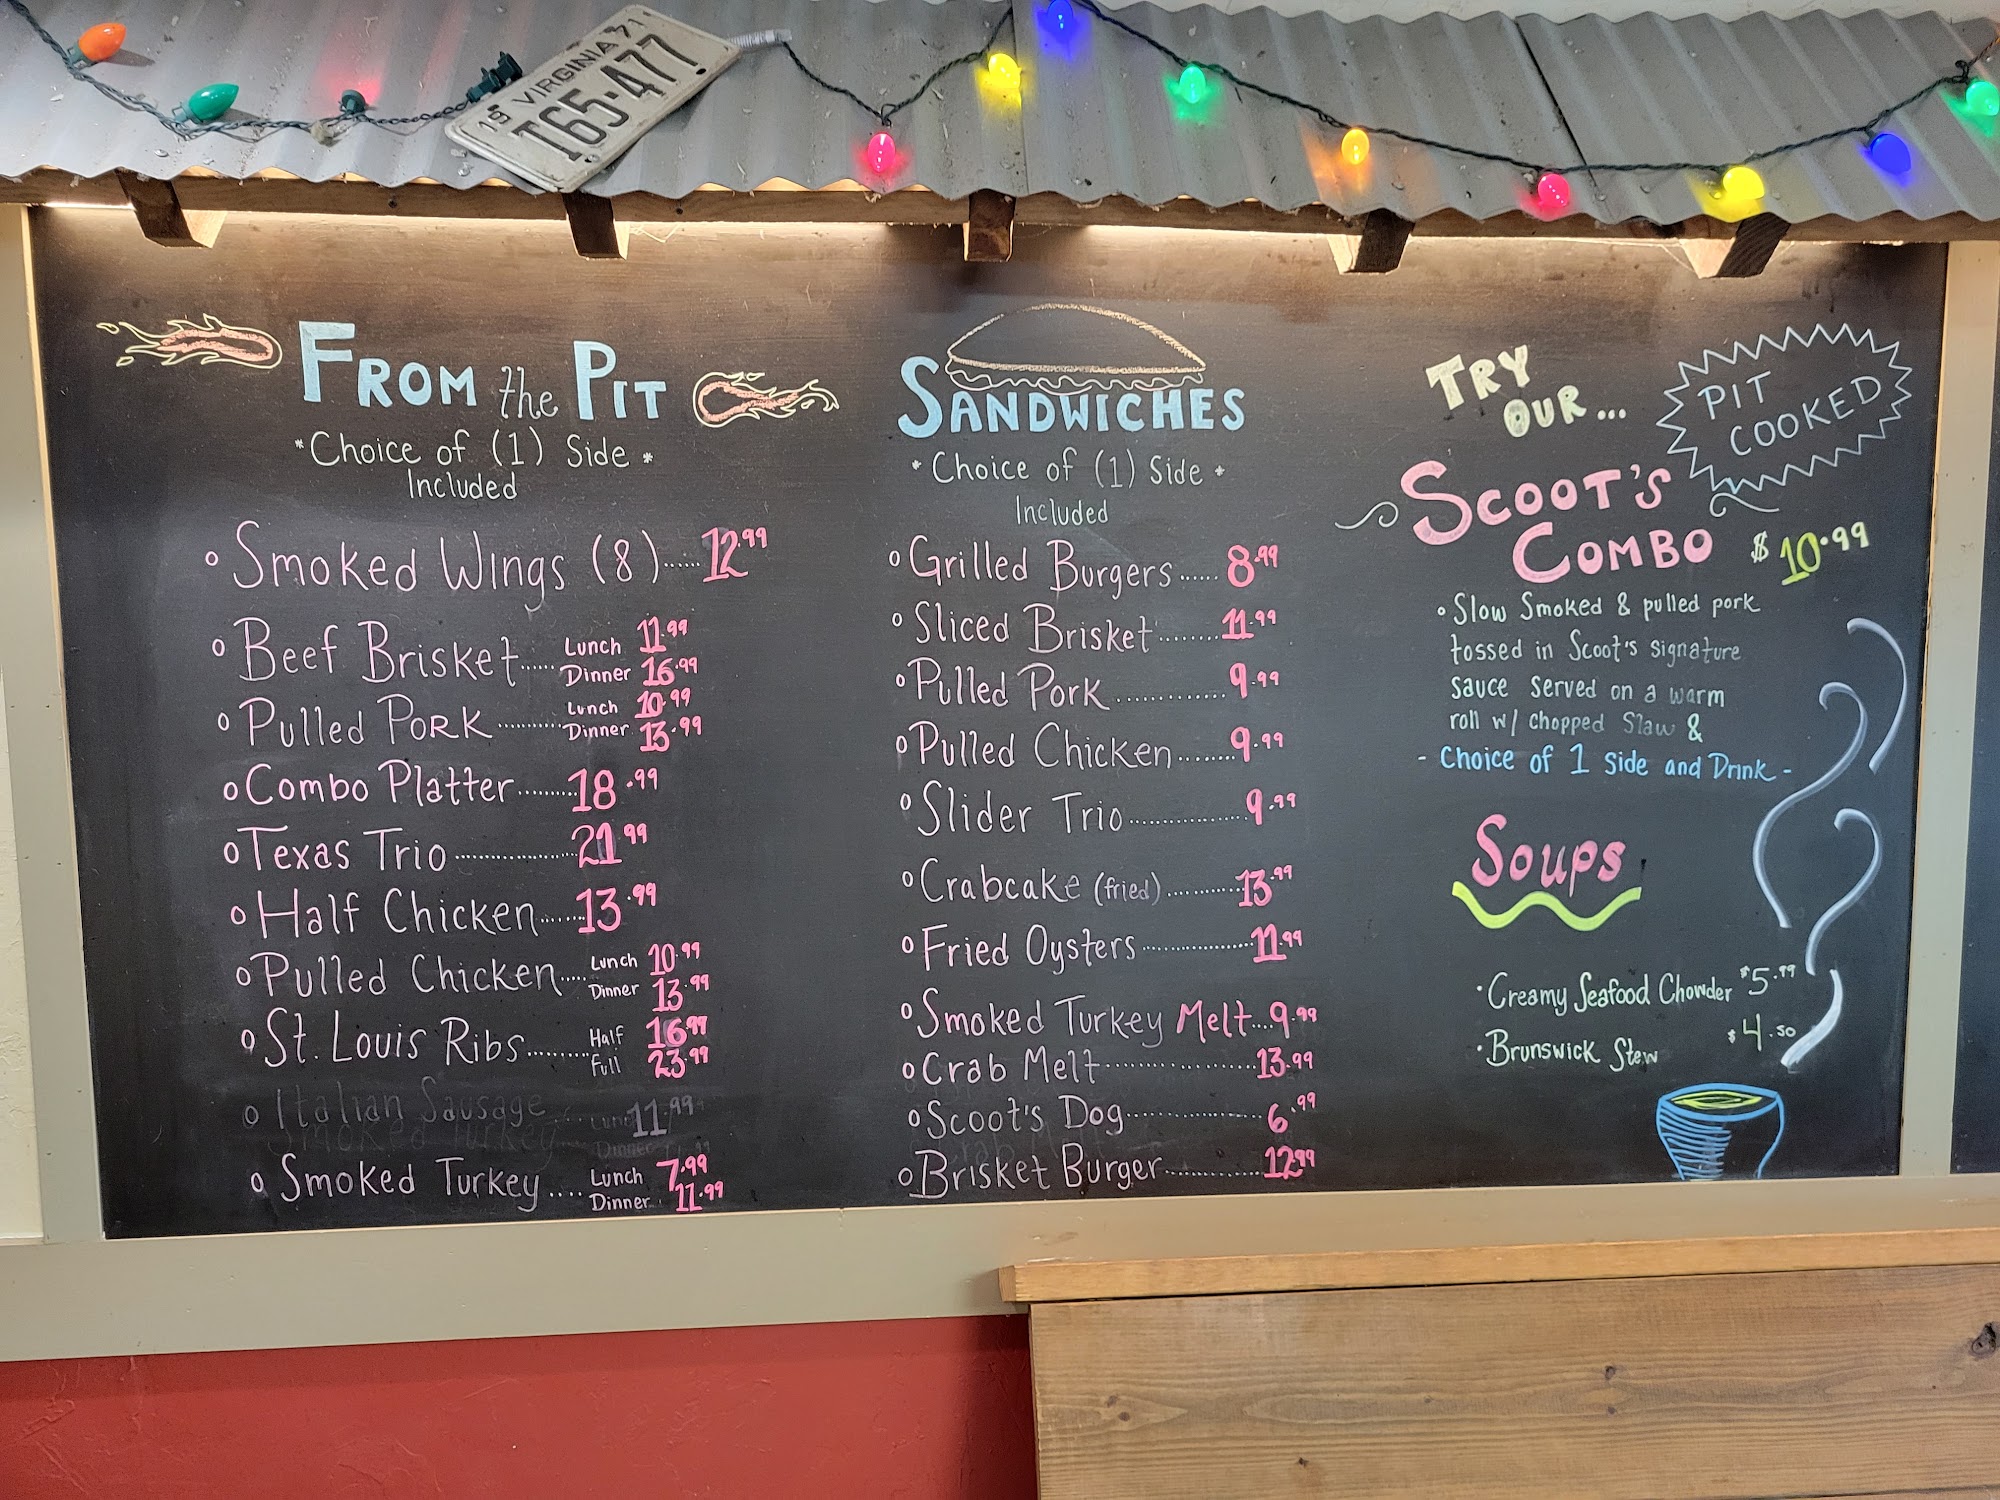 VIRGINIA 71
19
T65·477
FROM the PIT
*Choice of (1) Side*
Included
Smoked Wings (8)......12.99
Beef Brisket...... Lunch 11.99
Dinner 16.99
Pulled Pork............ Lunch 10.99
Dinner 13.99
Combo Platter.........18.99
Texas Trio..................21.99
Half Chicken.......13.99
Pulled Chicken.... Lunch 10.99
Dinner 13.99
St. Louis Ribs......... Half 16.99
Full 23.99
Italian Sausage 11.99
Smoked Turkey.... Lunch 7.99
Dinner 11.99
SANDWICHES
*Choice of (1) Side*
Included
Grilled Burgers......8.99
Sliced Brisket........11.99
Pulled Pork..............9.99
Pulled Chicken........9.99
Slider Trio.................9.99
Crabcake (fried)..........13.99
Fried Oysters................11.99
Smoked Turkey Melt...9.99
Crab Melt.....................13.99
Scoot's Dog...................6.99
Brisket Burger..............12.99
TRY
OUR...
PIT
COOKED
SCOOT'S
COMBO $10.99
Slow Smoked & pulled pork
tossed in Scoot's signature
sauce served on a warm
roll w/ chopped Slaw &
- Choice of 1 side and Drink -
Soups
·Creamy Seafood Chowder $5.99
·Brunswick Stew $4.50